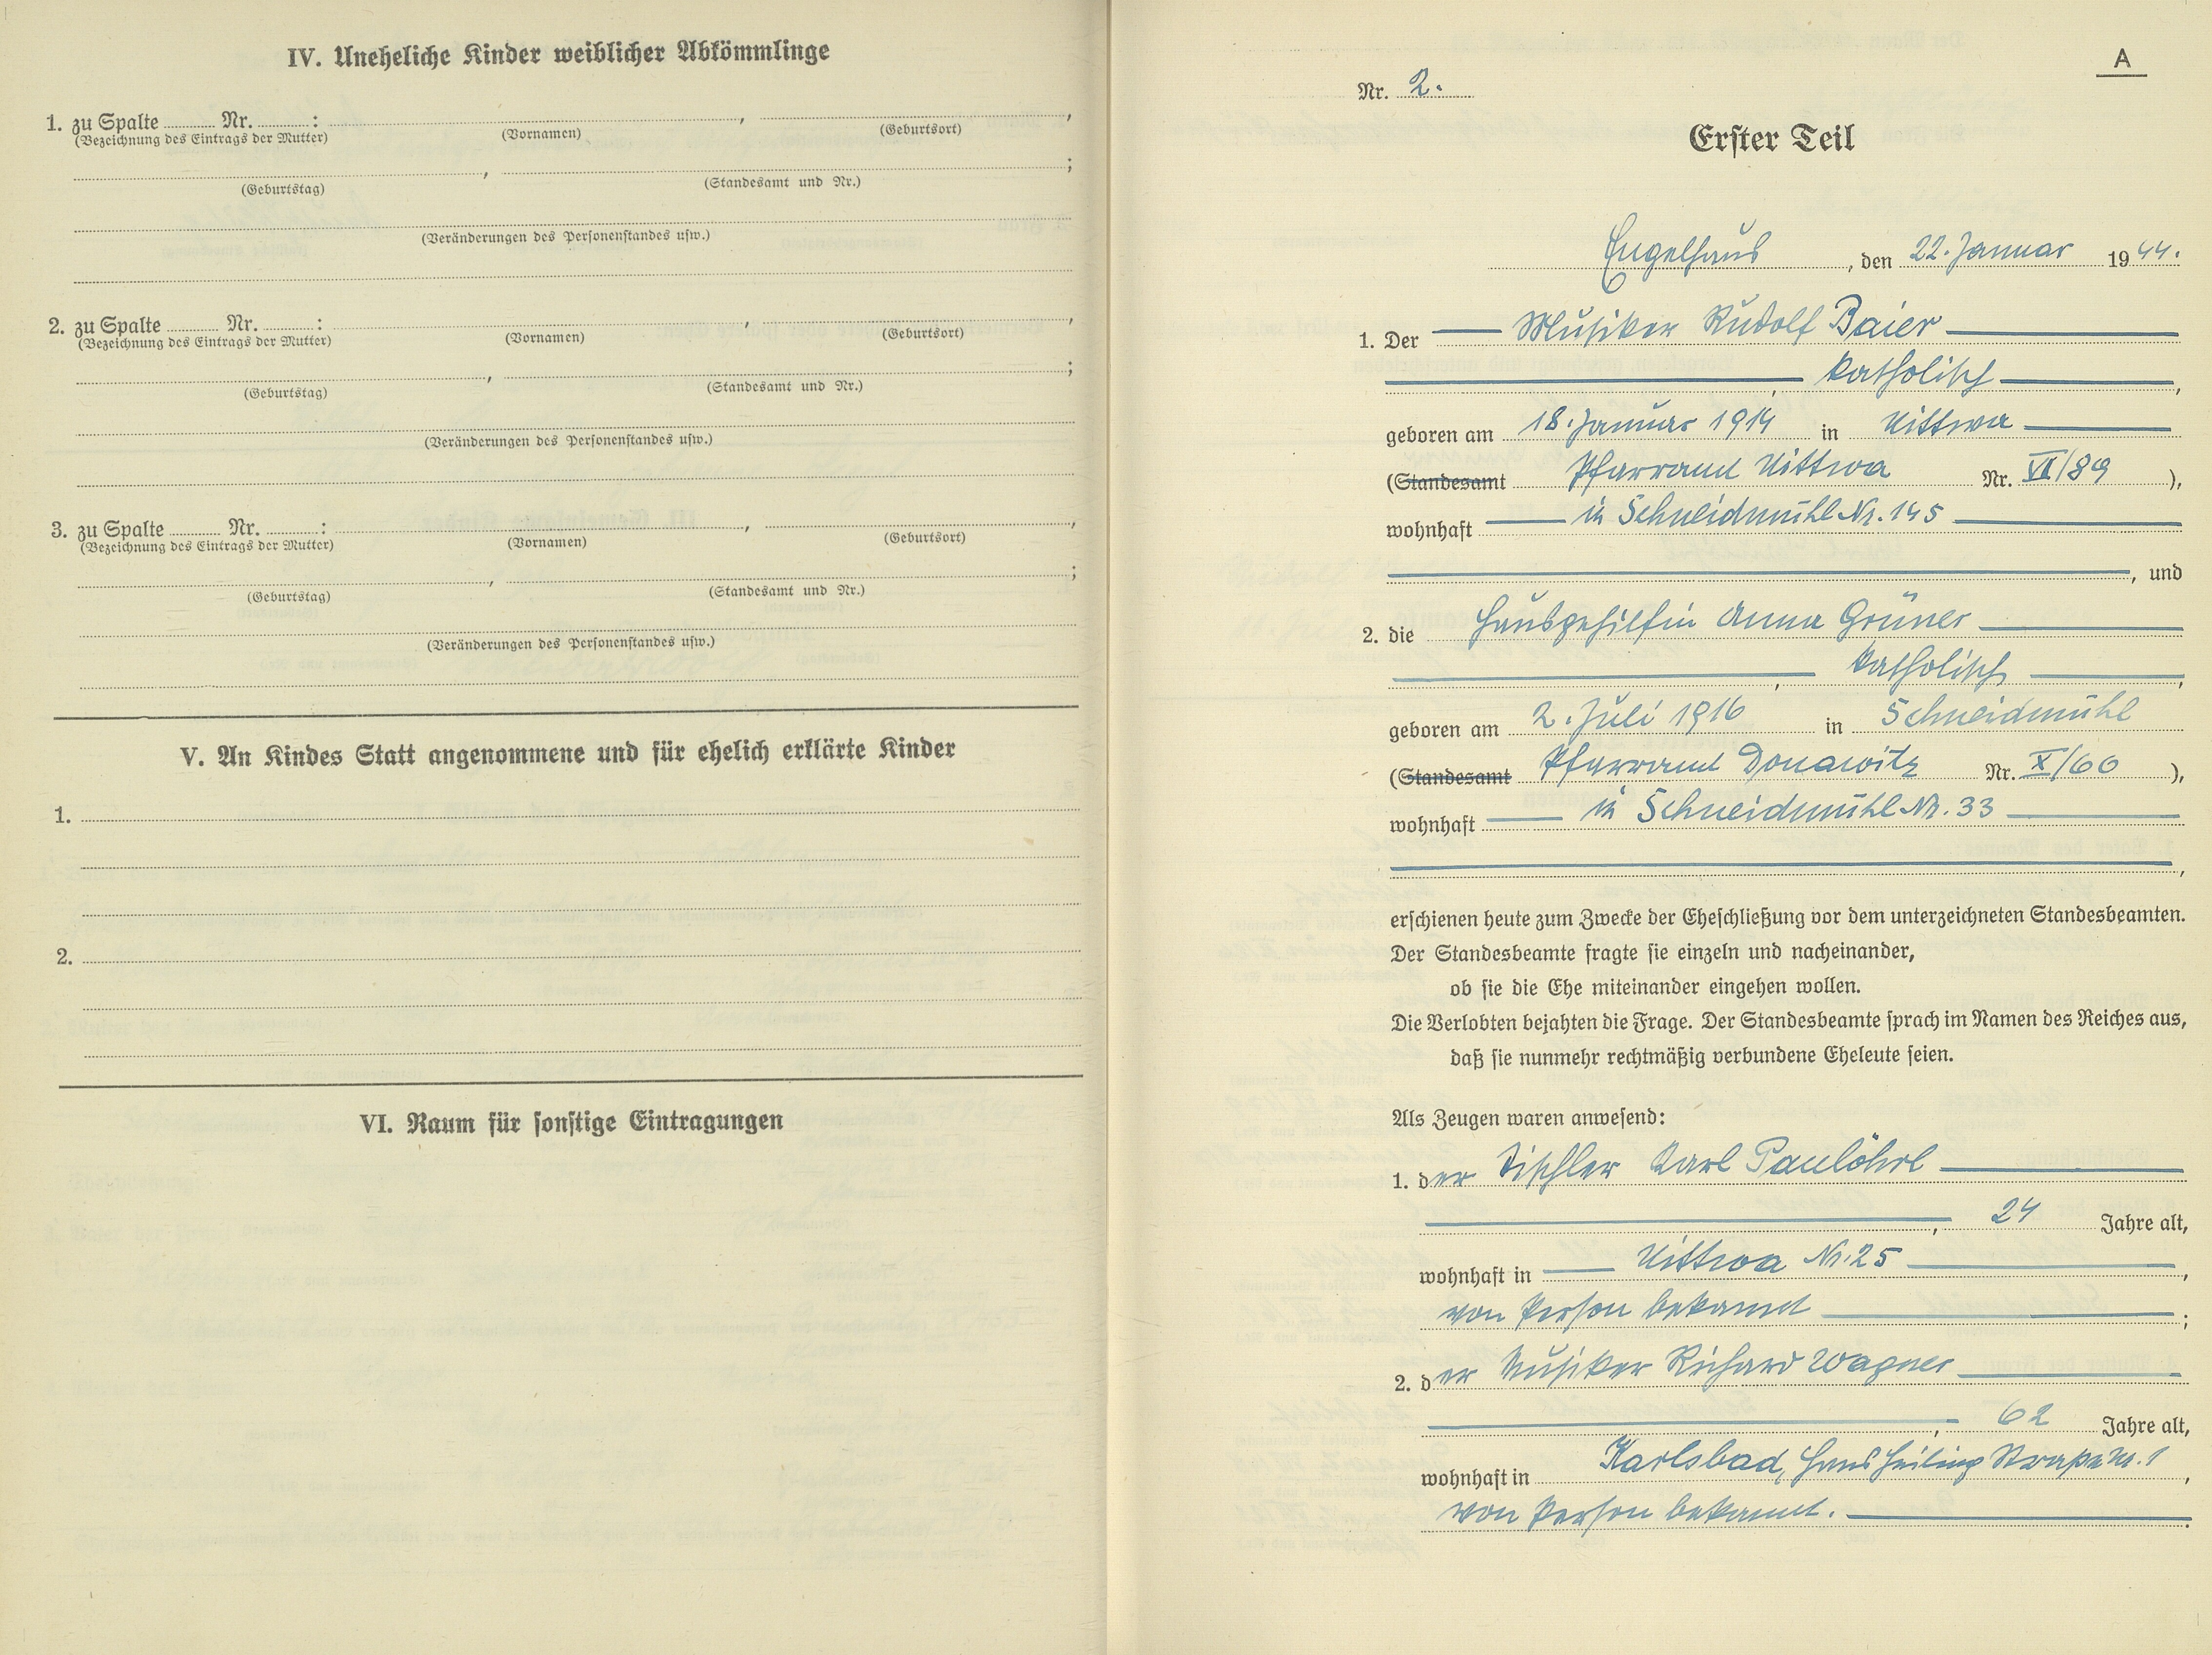 IV. Uneheliche Kinder weiblicher Abkömmlinge
1. zu Spalte ........ Nr. ........ : ........ , ........ ,
(Bezeichnung des Eintrags der Mutter) (Vornamen) (Geburtsort)
........ , ........ ;
(Geburtstag) (Standesamt und Nr.)
(Veränderungen des Personenstandes usw.)
2. zu Spalte ........ Nr. ........ : ........ , ........ ,
(Bezeichnung des Eintrags der Mutter) (Vornamen) (Geburtsort)
........ , ........ ;
(Geburtstag) (Standesamt und Nr.)
(Veränderungen des Personenstandes usw.)
3. zu Spalte ........ Nr. ........ : ........ , ........ ,
(Bezeichnung des Eintrags der Mutter) (Vornamen) (Geburtsort)
........ , ........ ;
(Geburtstag) (Standesamt und Nr.)
(Veränderungen des Personenstandes usw.)
V. An Kindes Statt angenommene und für ehelich erklärte Kinder
1.
2.
VI. Raum für sonstige Eintragungen
A
Nr. 2.
Erster Teil
Engelhaus, den 22. Januar 1944.
1. Der Musiker Rudolf Baier
, katholisch,
geboren am 18. Januar 1914 in Uittwa
(Standesamt Pfarramt Uittwa Nr. VI/89 ),
wohnhaft in Schneidmühl Nr. 145
, und
2. die Hausgehilfin Anna Grüner
, katholisch,
geboren am 2. Juli 1916 in Schneidmühl
(Standesamt Pfarramt Donawitz Nr. X/60 ),
wohnhaft in Schneidmühl Nr. 33
,
erschienen heute zum Zwecke der Eheschließung vor dem unterzeichneten Standesbeamten.
Der Standesbeamte fragte sie einzeln und nacheinander,
ob sie die Ehe miteinander eingehen wollen.
Die Verlobten bejahten die Frage. Der Standesbeamte sprach im Namen des Reiches aus,
daß sie nunmehr rechtmäßig verbundene Eheleute seien.
Als Zeugen waren anwesend:
1. der Tischler Karl Paulöhrl
, 24 Jahre alt,
wohnhaft in Uittwa Nr. 25,
von Person bekannt ;
2. der Musiker Richard Wagner
, 62 Jahre alt,
wohnhaft in Karlsbad, Hans Heiling Strasse Nr. 1,
von Person bekannt.